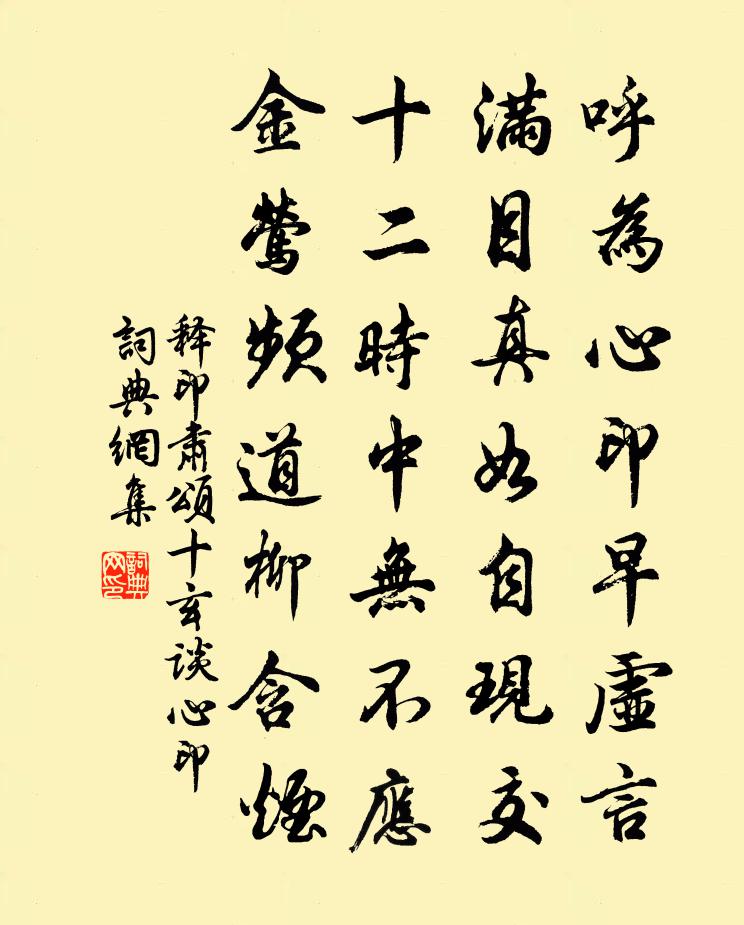 呼為心印早虛言
滿目真如自現交
十二時中無不應
金鶯頻道柳含煙
释印肅頌十玄談心印
詞典網集
詞典網印